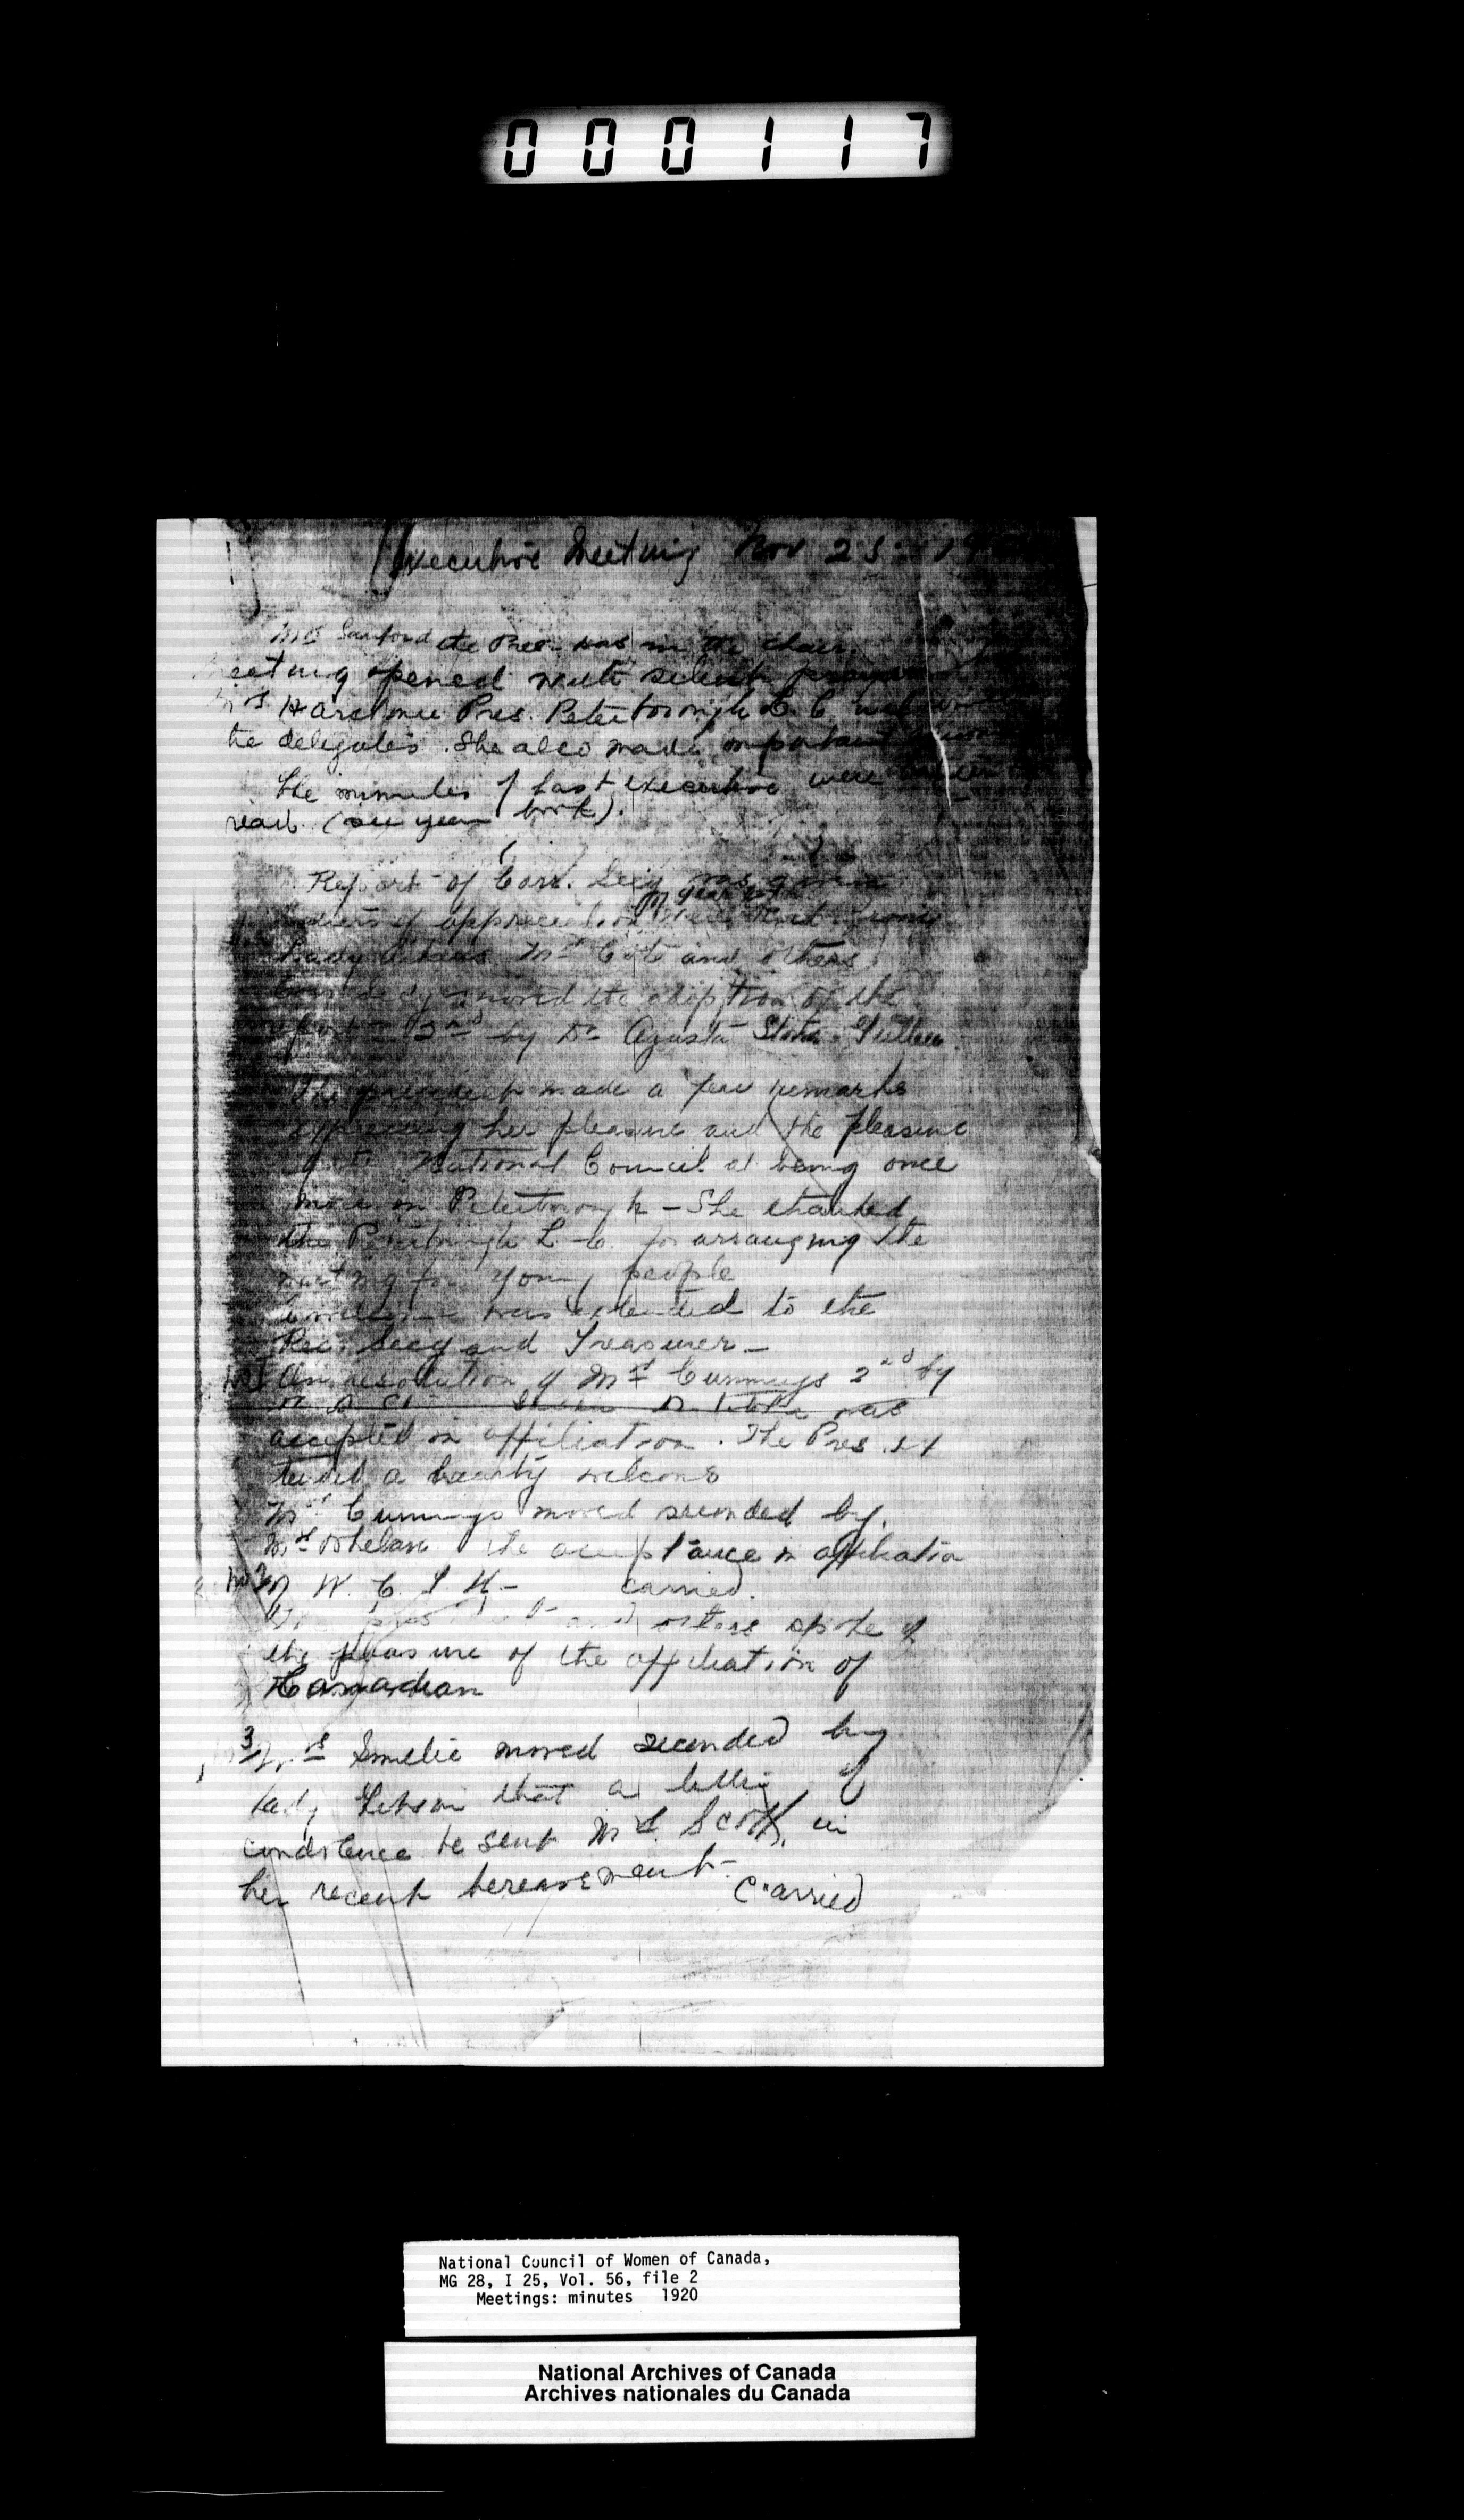 000117
Executive Meeting Nov 23
Mrs Sanford the Pres. was in the chair
Meeting opened with silent prayer
Mrs Pres. Peterborough L. C.
the delegates. She also made important
The minutes of last executive were
read (see year book).
Report of Corr. Secy was given
of appreciation were
for year
Lady Mrs Coté and others
Corr Secy moved the adoption of the
report 2nd by Dr Agusta Stowe Gullen.
The president made a few remarks
expressing her pleasure and the pleasure
of the National Council at being once
more in Peterborough - She thanked
the Peterborough L-C. for arranging the
meeting for young people
was extended to the
Rec. Secy and Treasurer -
No 1 On resolution of Mrs Cummings 2nd by
was
accepted in affiliation. The Pres. ex
tended a hearty welcome
Mrs Cummings moved seconded by,
Mrs Whelan the acceptance in affiliation
No 2 of W. C. T. U - carried.
The president and others spoke of
the pleasure of the affiliation of
Canadian
3 Mrs Smelie moved seconded by
Lady Gibson that a letter of
condolence be sent Mrs. Scott, in
her recent bereavement -
Carried
National Council of Women of Canada,
MG 28, I 25, Vol. 56, file 2
Meetings: minutes 1920
National Archives of Canada
Archives nationales du Canada